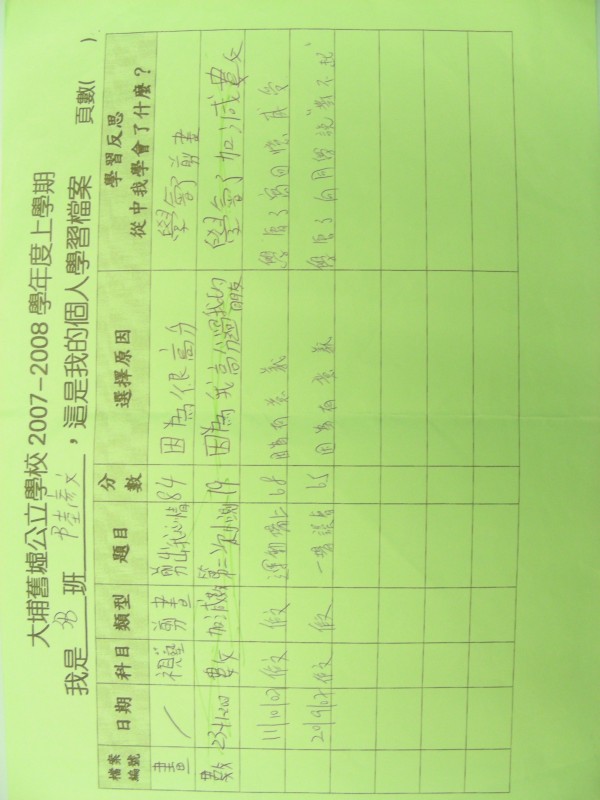 大埔舊墟公立學校 2007-2008 學年度上學期
我是 3B 班 陸彥文 ，這是我的個人學習檔案 頁數( )
檔案編號 日期 科目 類型 題目 分數 選擇原因 學習反思 從中我學會了什麼？
畫 / 視藝 剪畫 剪出我心情 84 因為很高分 學會了剪畫
數 數 加減數 第二次小測 79 因為我高分過我的朋友 學會了加減數
11/10/07 作文 做 運動場上 68 因為有意義 學會了寫回憶
20/9/07 作文 做 65 因為有意義 學會了向同學說"對不起"